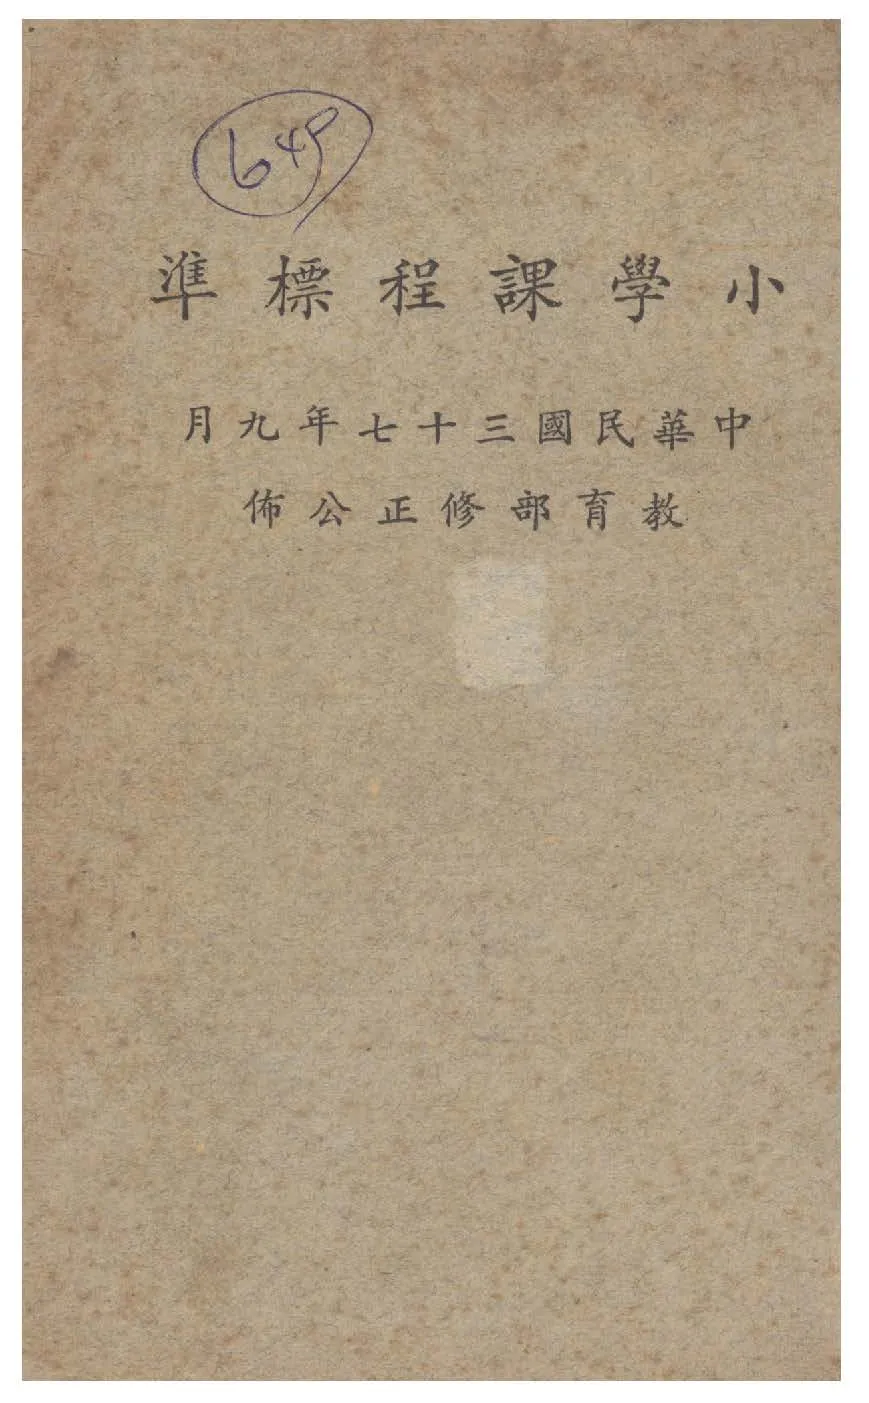 649
小學課程標準
中華民國三十七年九月
教育部修正公佈